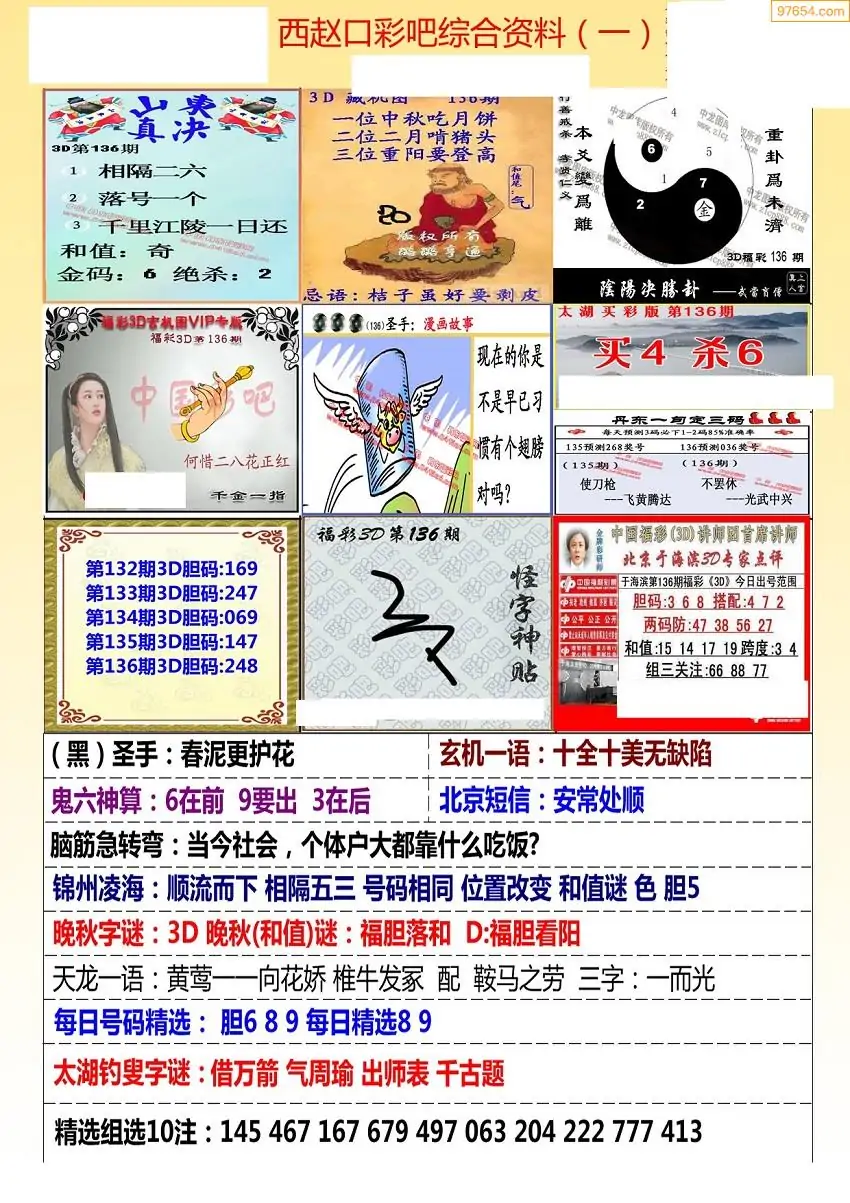 97654.com
西赵口彩吧综合资料（一）
山东
真决
3D第136期
1 相隔二六
2 落号一个
3 千里江陵一日还
和值：奇
金码：6 绝杀：2
3D 藏机图 136期
一位中秋吃月饼
二位二月啃猪头
三位重阳要登高
和值尾：气
版权所有
忌语：桔子虽好要剥皮
本爻變爲離
重卦爲未濟
4
6
5
1
7
2
金
3D福彩 136 期
陰陽决勝卦 ——武當肖僧
福彩3D玄机图VIP专版
福彩3D第136期
中国彩吧
何惜二八花正红
千金一指
(136)圣手：漫画故事
现在的你是
不是早已习
惯有个翅膀
对吗？
太湖买彩版 第136期
买4 杀6
丹东一句定三码
每天预测3码必下1-2码85%准确率
135预测268奖号 136预测036奖号
（135期） （136期）
使刀枪 不罢休
---飞黄腾达 ---光武中兴
第132期3D胆码:169
第133期3D胆码:247
第134期3D胆码:069
第135期3D胆码:147
第136期3D胆码:248
福彩3D第136期
怪字神贴
金牌彩研师
中国福彩(3D)讲师团首席讲师
北京于海滨3D专家点评
于海滨第136期福彩《3D》今日出号范围
胆码:3 6 8 搭配:4 7 2
两码防:47 38 56 27
和值:15 14 17 19 跨度:3 4
组三关注:66 88 77
（黑）圣手：春泥更护花
玄机一语：十全十美无缺陷
鬼六神算：6在前 9要出 3在后
北京短信：安常处顺
脑筋急转弯：当今社会，个体户大都靠什么吃饭?
锦州凌海：顺流而下 相隔五三 号码相同 位置改变 和值谜 色 胆5
晚秋字谜：3D 晚秋(和值)谜：福胆落和 D:福胆看阳
天龙一语：黄莺一一向花娇 椎牛发冢 配 鞍马之劳 三字：一而光
每日号码精选： 胆6 8 9 每日精选8 9
太湖钓叟字谜：借万箭 气周瑜 出师表 千古题
精选组选10注：145 467 167 679 497 063 204 222 777 413